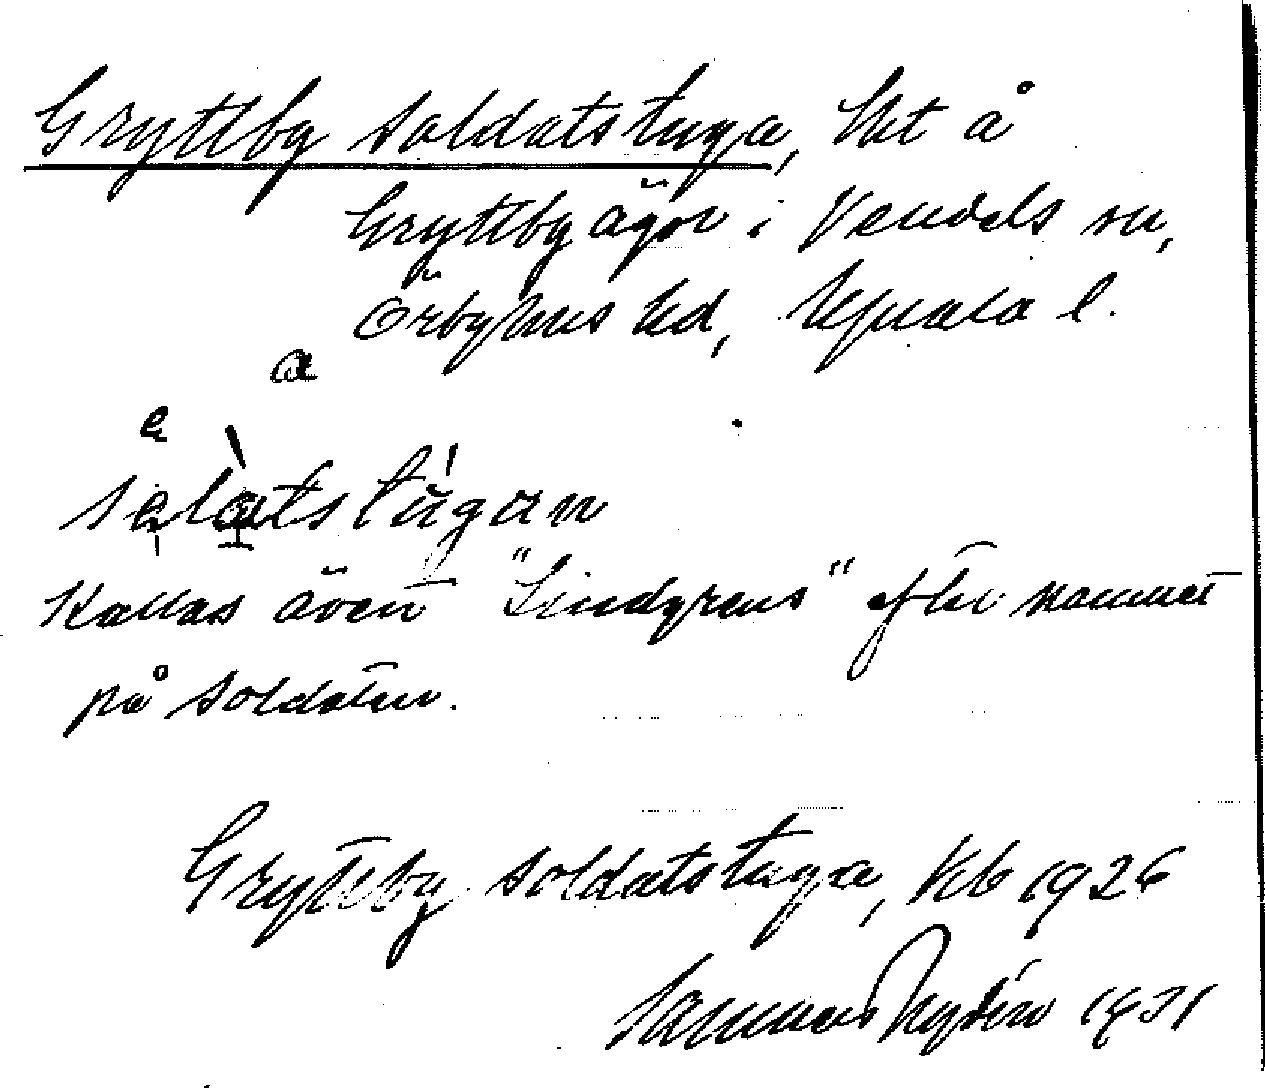 Gryttby soldatstuga, lht å
Gryttby ägor i Vendels sn,
Örbyhus hd, Uppsala l.
a
e
selatstugan
Kallas även "Lindgrens" efter namnet
på soldaten.
Gryttby soldatstuga, kb 1926
1931